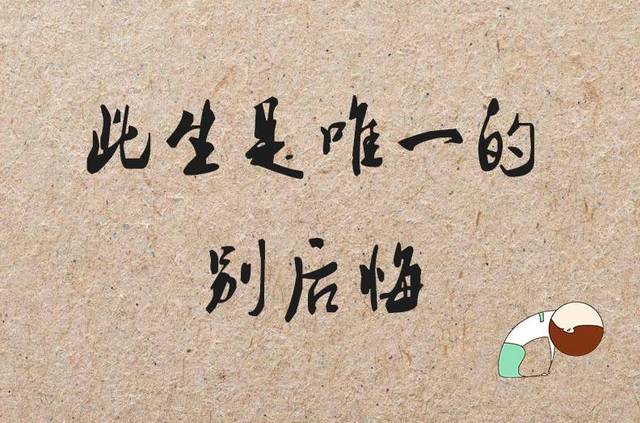 此生是唯一的
别后悔